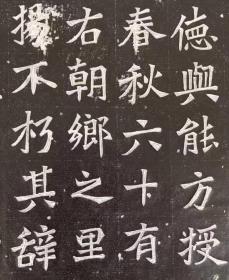 徳與能方授
春秋六十有
右朝鄉之里
揚不朽其辞